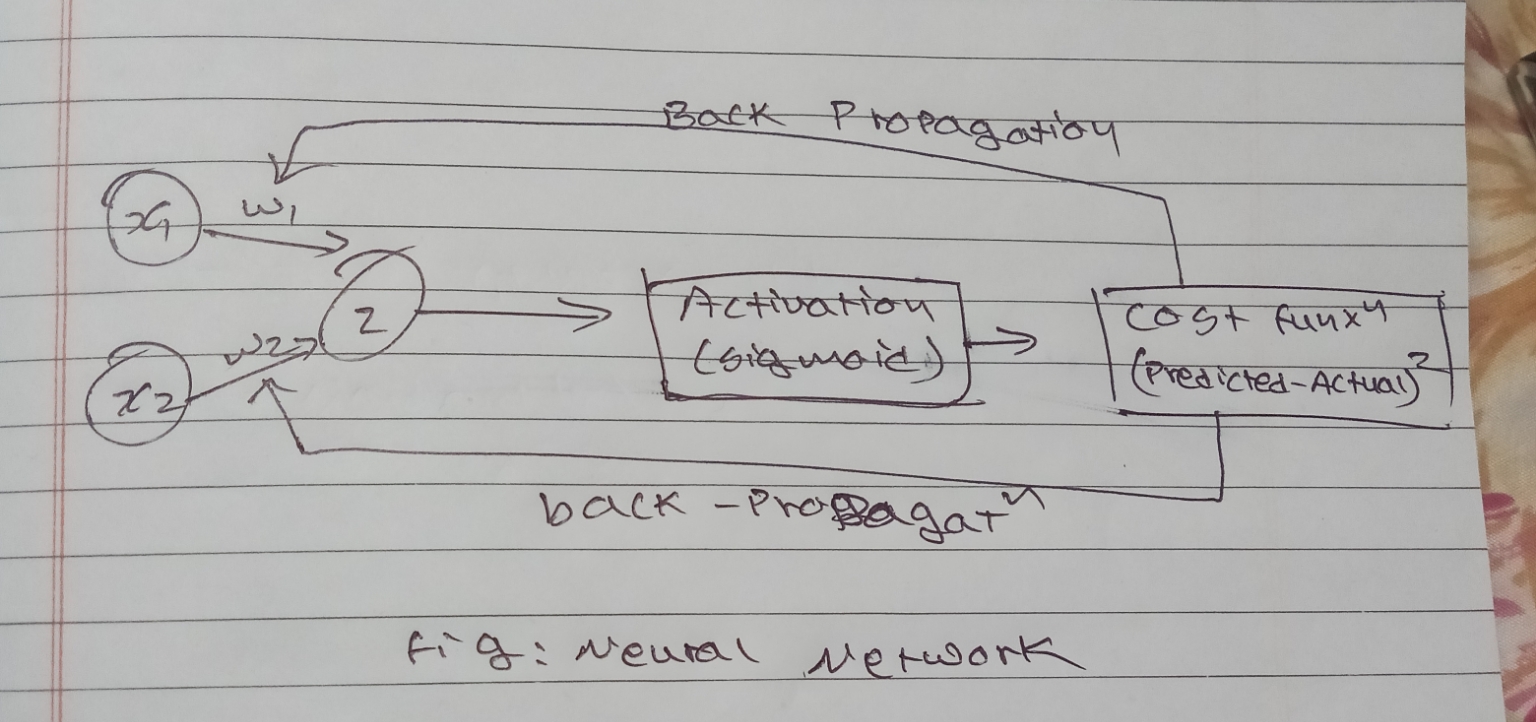 Back Propagation
x1
w1
z
x2
w2
Activation
(sigmoid)
cost funxn
(Predicted-Actual)²
back - Propagatn
fig: Neural Network